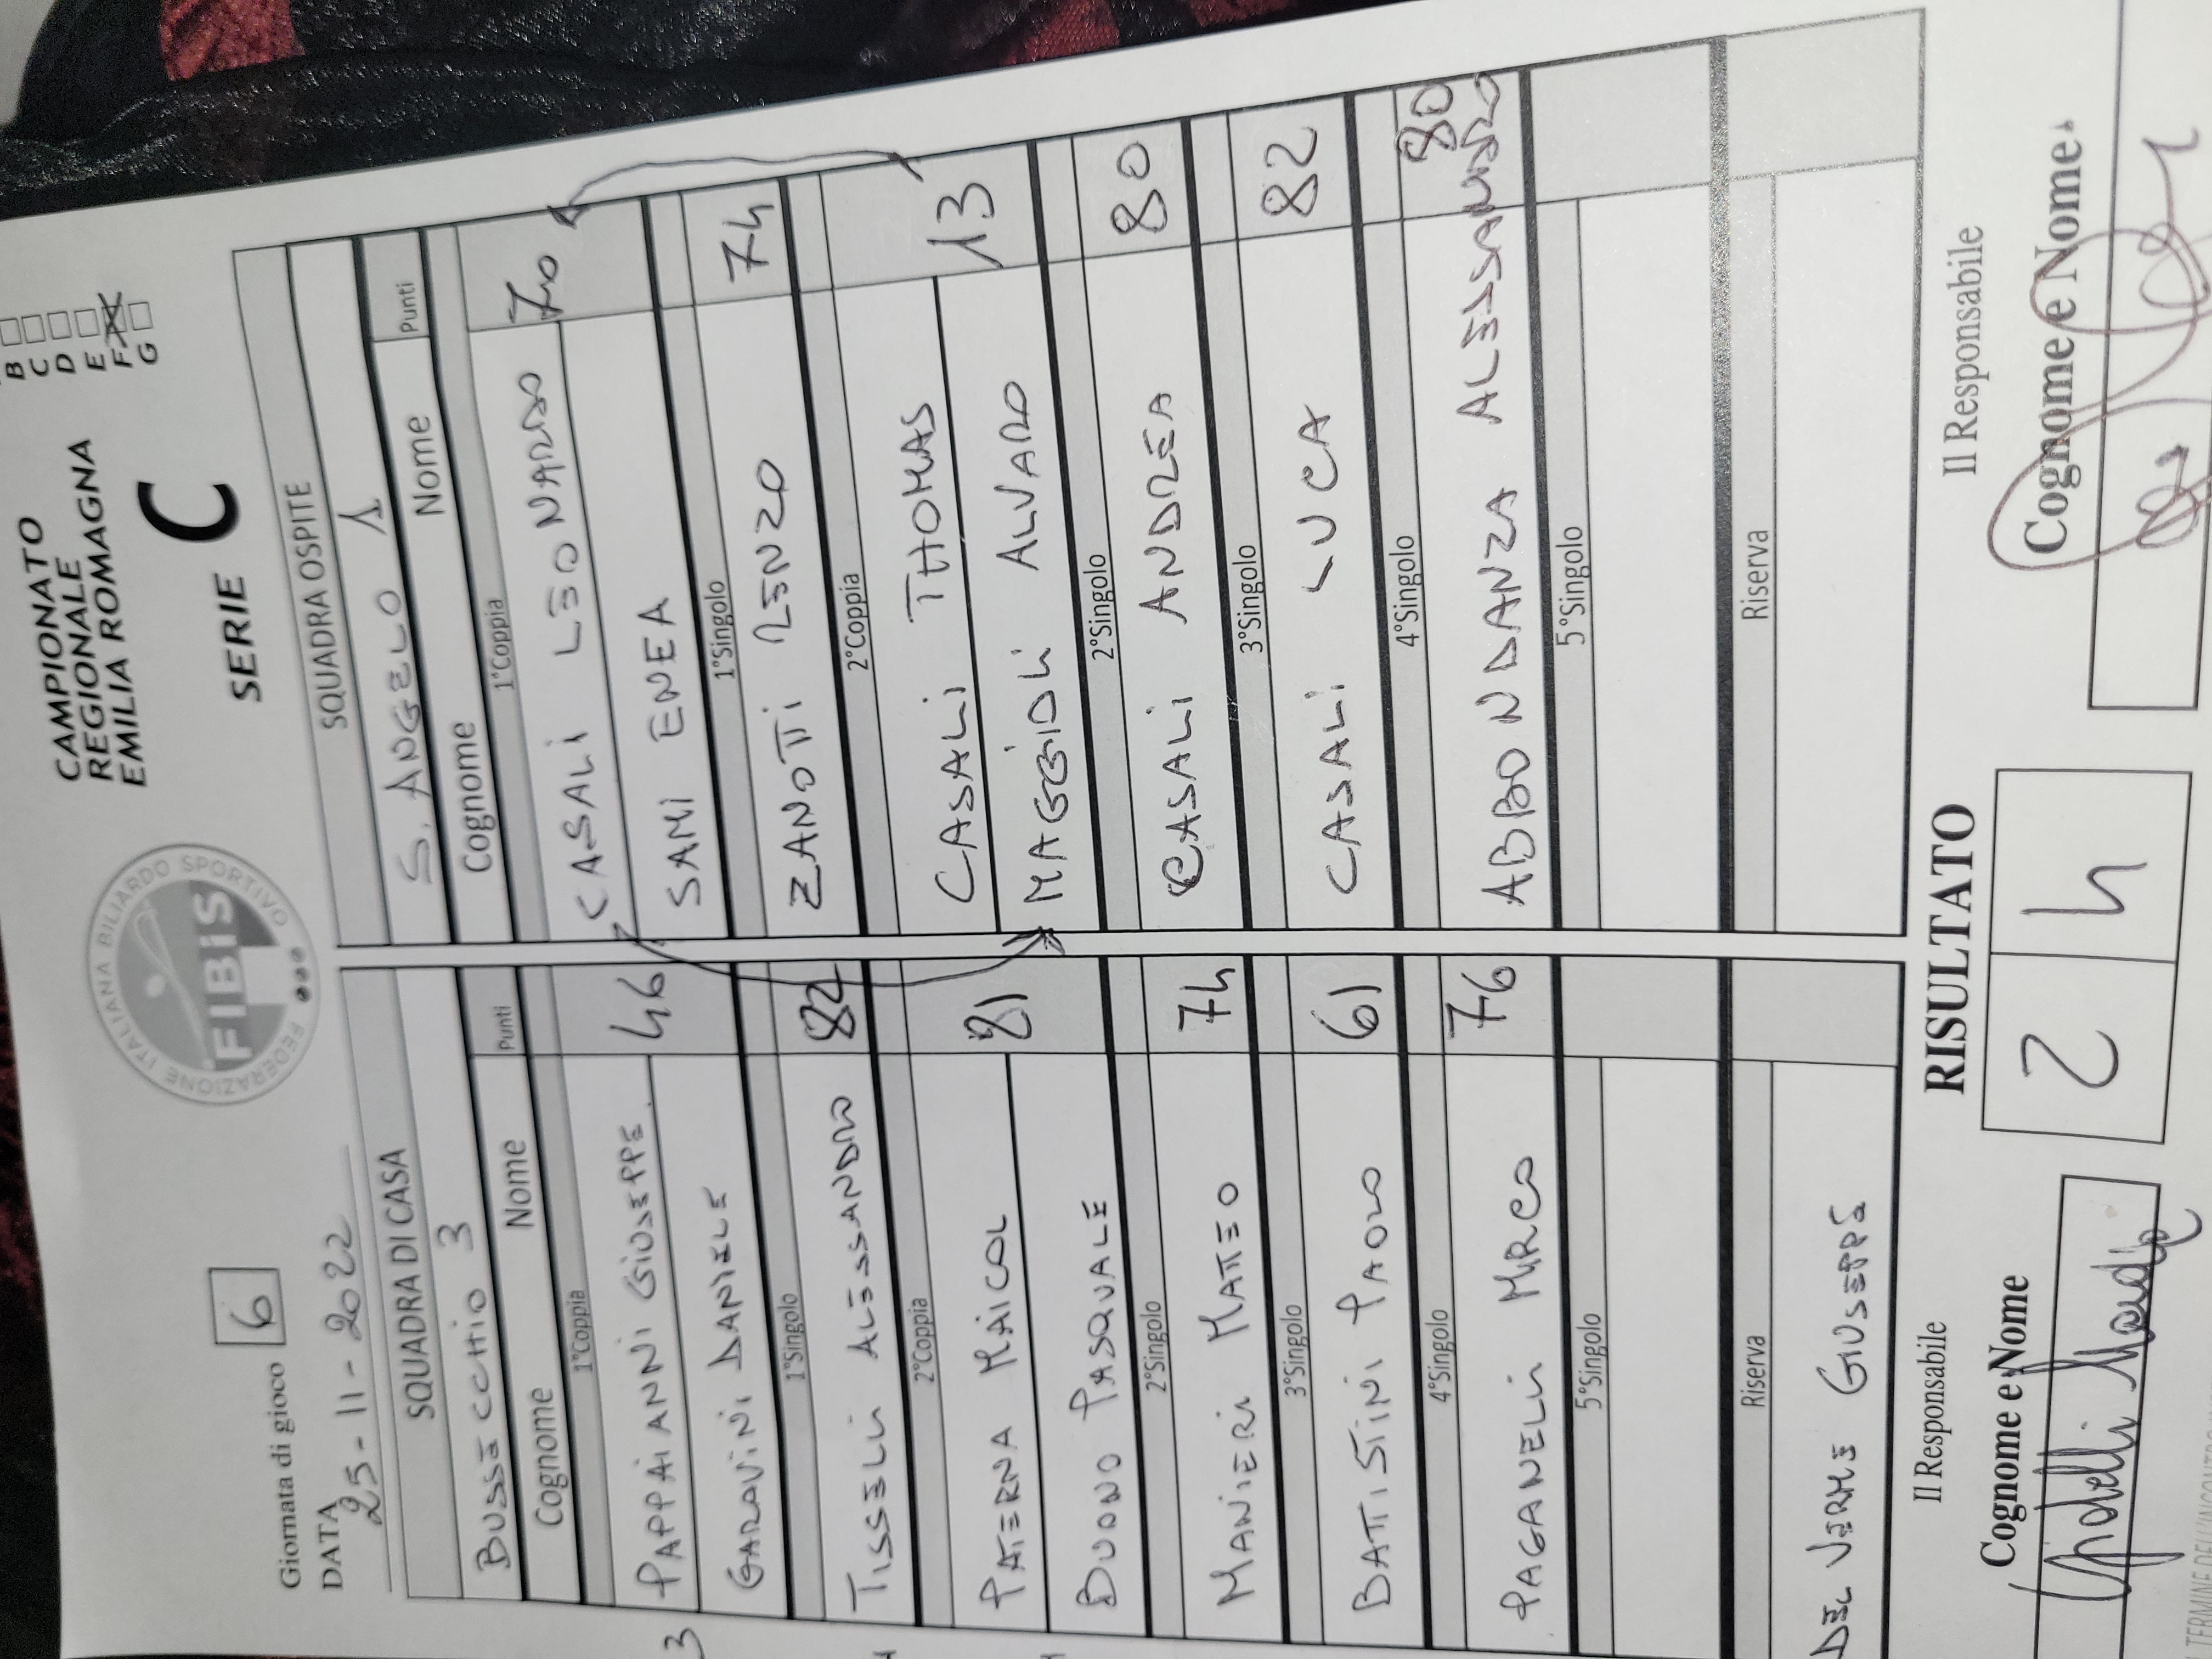 Giornata di gioco 6
DATA 25-11-2022
FEDERAZIONE ITALIANA BILIARDO SPORTIVO
FIBiS
CAMPIONATO
REGIONALE
EMILIA ROMAGNA
SERIE C
B
C
D
E
F X
G
SQUADRA DI CASA
BUSSECCHIO 3
Cognome Nome Punti
1°Coppia
3 PAPPAIANNI GIUSEPPE 46
GARAVINI DANIELE
1°Singolo
TISSELLI ALESSANDRO 82
2°Coppia
PATERNA MAICOL 81
BUONO PASQUALE
2°Singolo
MANIERI MATTEO 74
3°Singolo
BATTISTINI PAOLO 61
4°Singolo
PAGANELLI MIRCO 76
5°Singolo
Riserva
DEL VERME GIUSEPPE
SQUADRA OSPITE
S. ANGELO 1
Cognome Nome Punti
1°Coppia
CASALI LEONARDO 70
SAMI ENEA
1°Singolo
ZANOTTI RENZO 74
2°Coppia
CASALI THOMAS 13
MAGGIOLI ALVARO
2°Singolo
CASALI ANDREA 80
3°Singolo
CASALI LUCA 82
4°Singolo
ABBONDANZA ALESSANDRO 80
5°Singolo
Riserva
Il Responsabile
Cognome e Nome
RISULTATO
2 4
Il Responsabile
Cognome e Nome